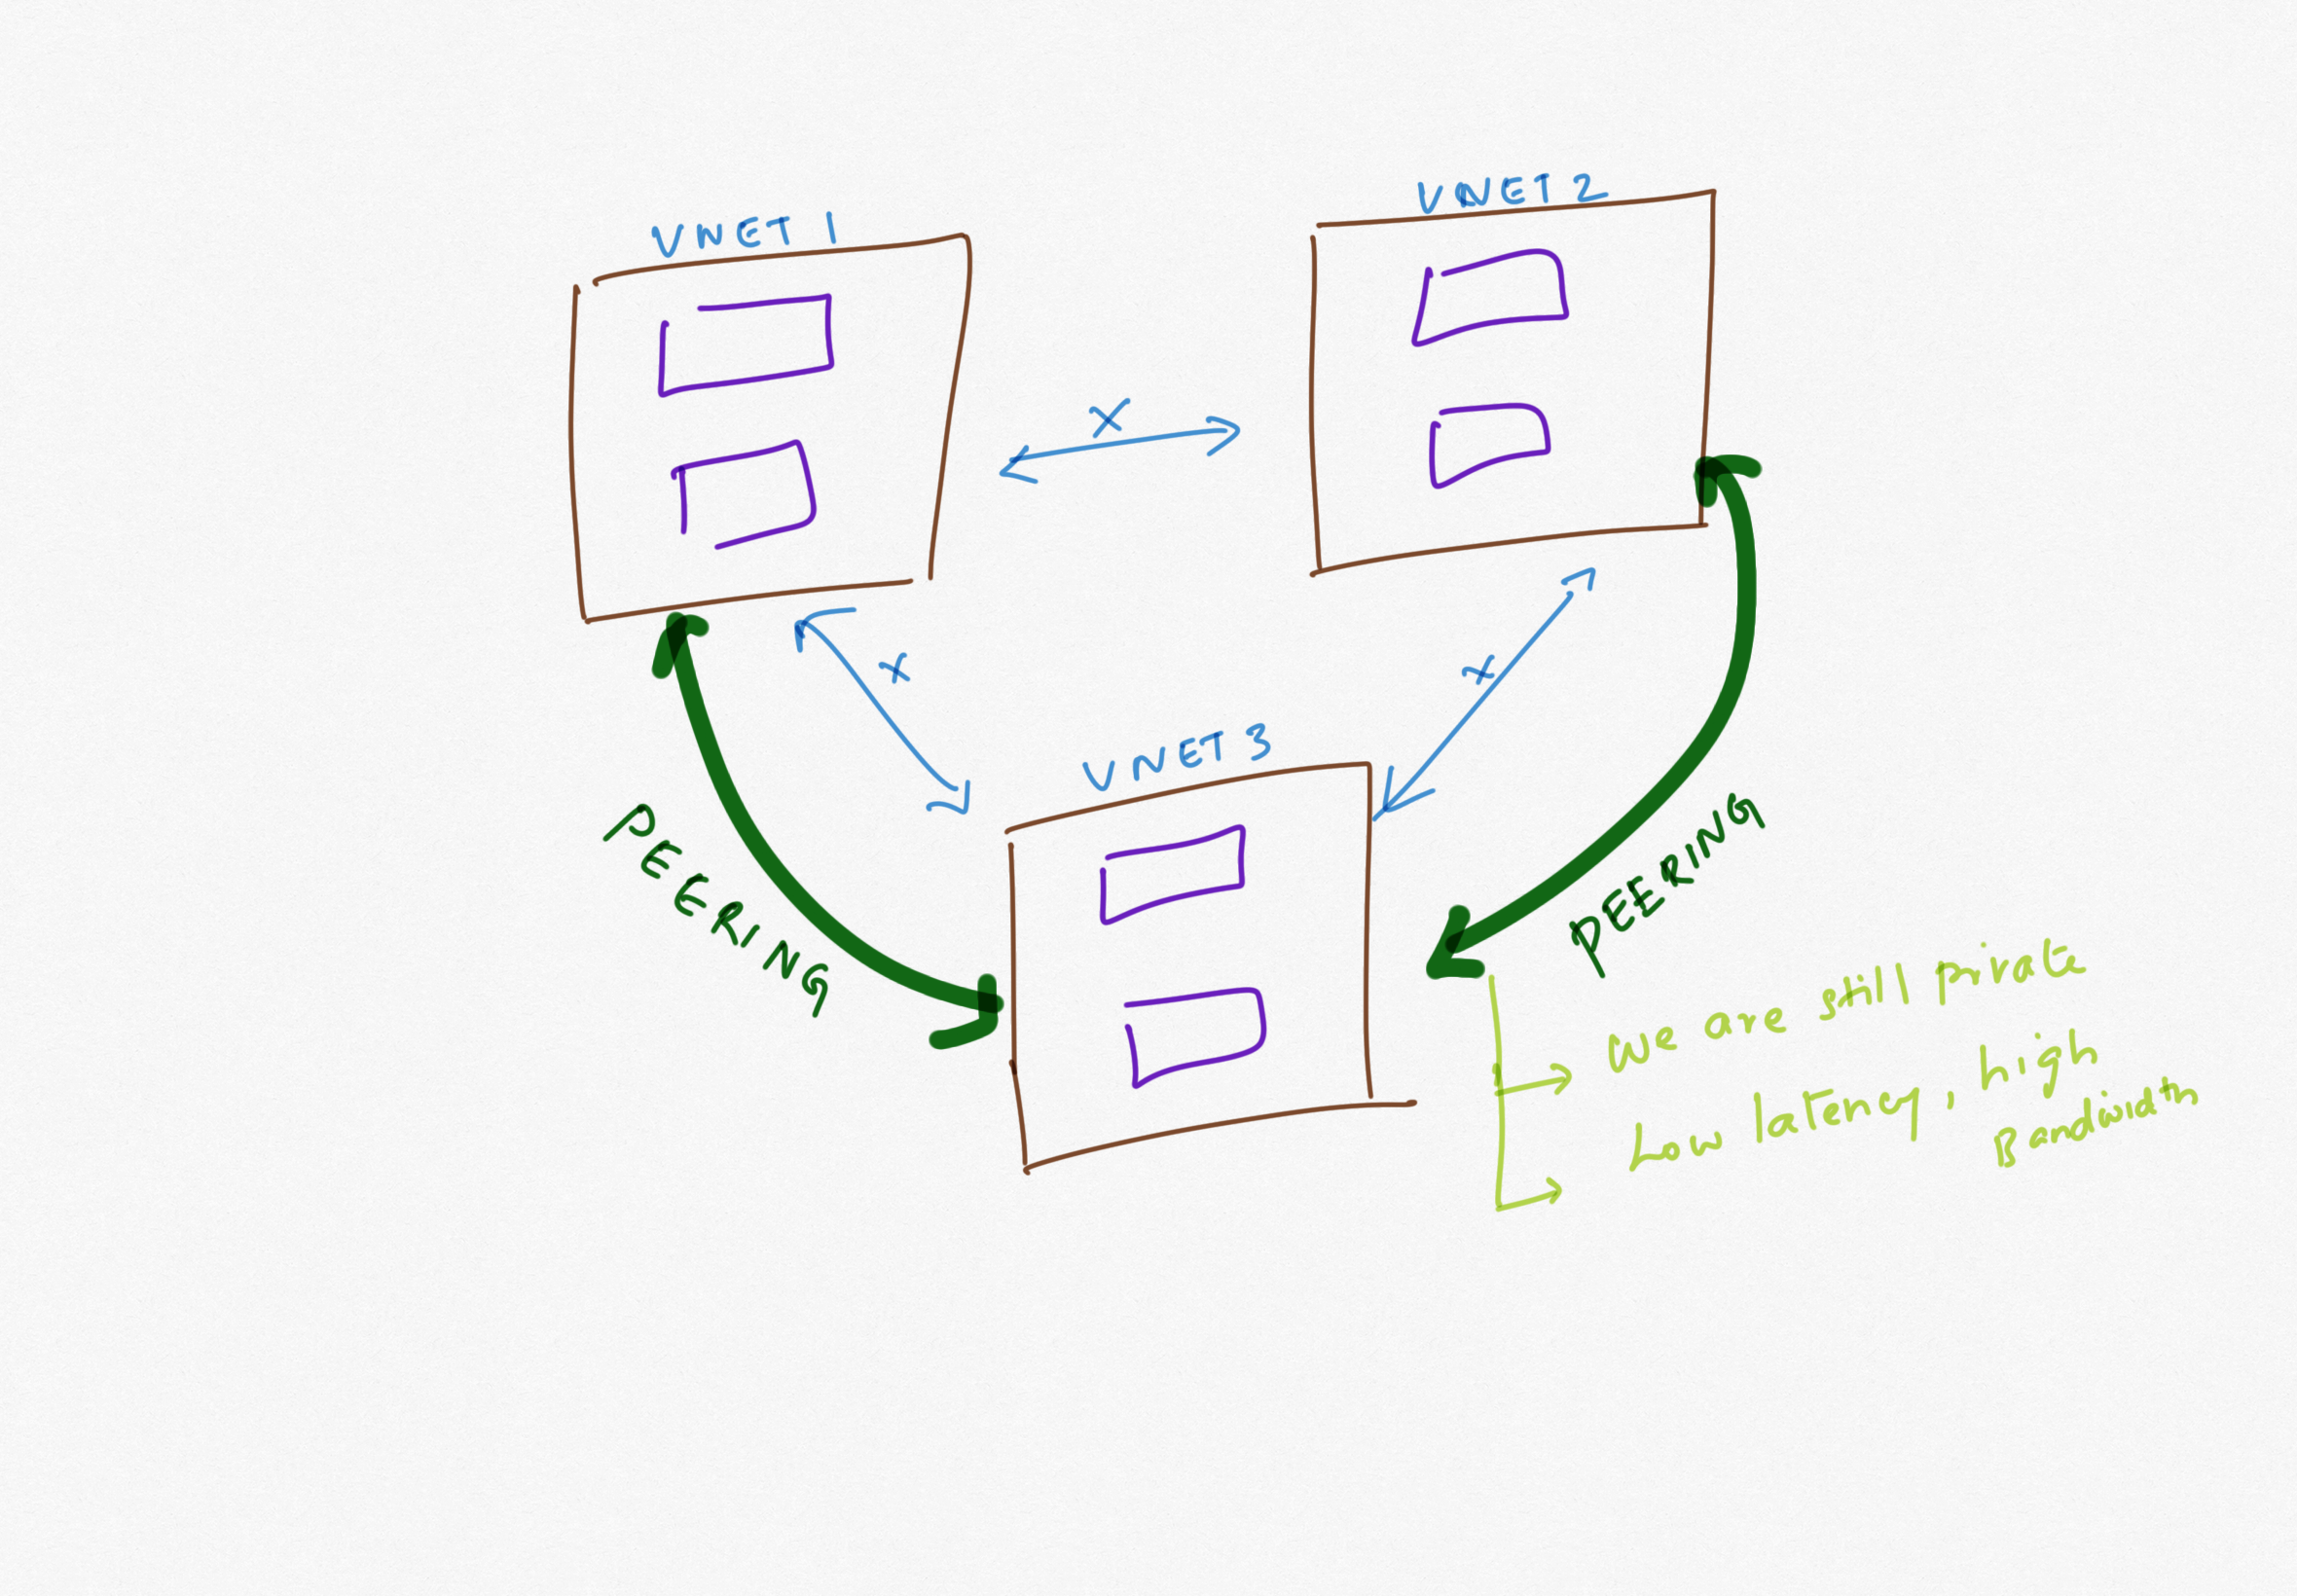 VNET 1
VNET 2
X
X
X
VNET 3
PEERING
PEERING
We are still private
Low latency, high
Bandwidth